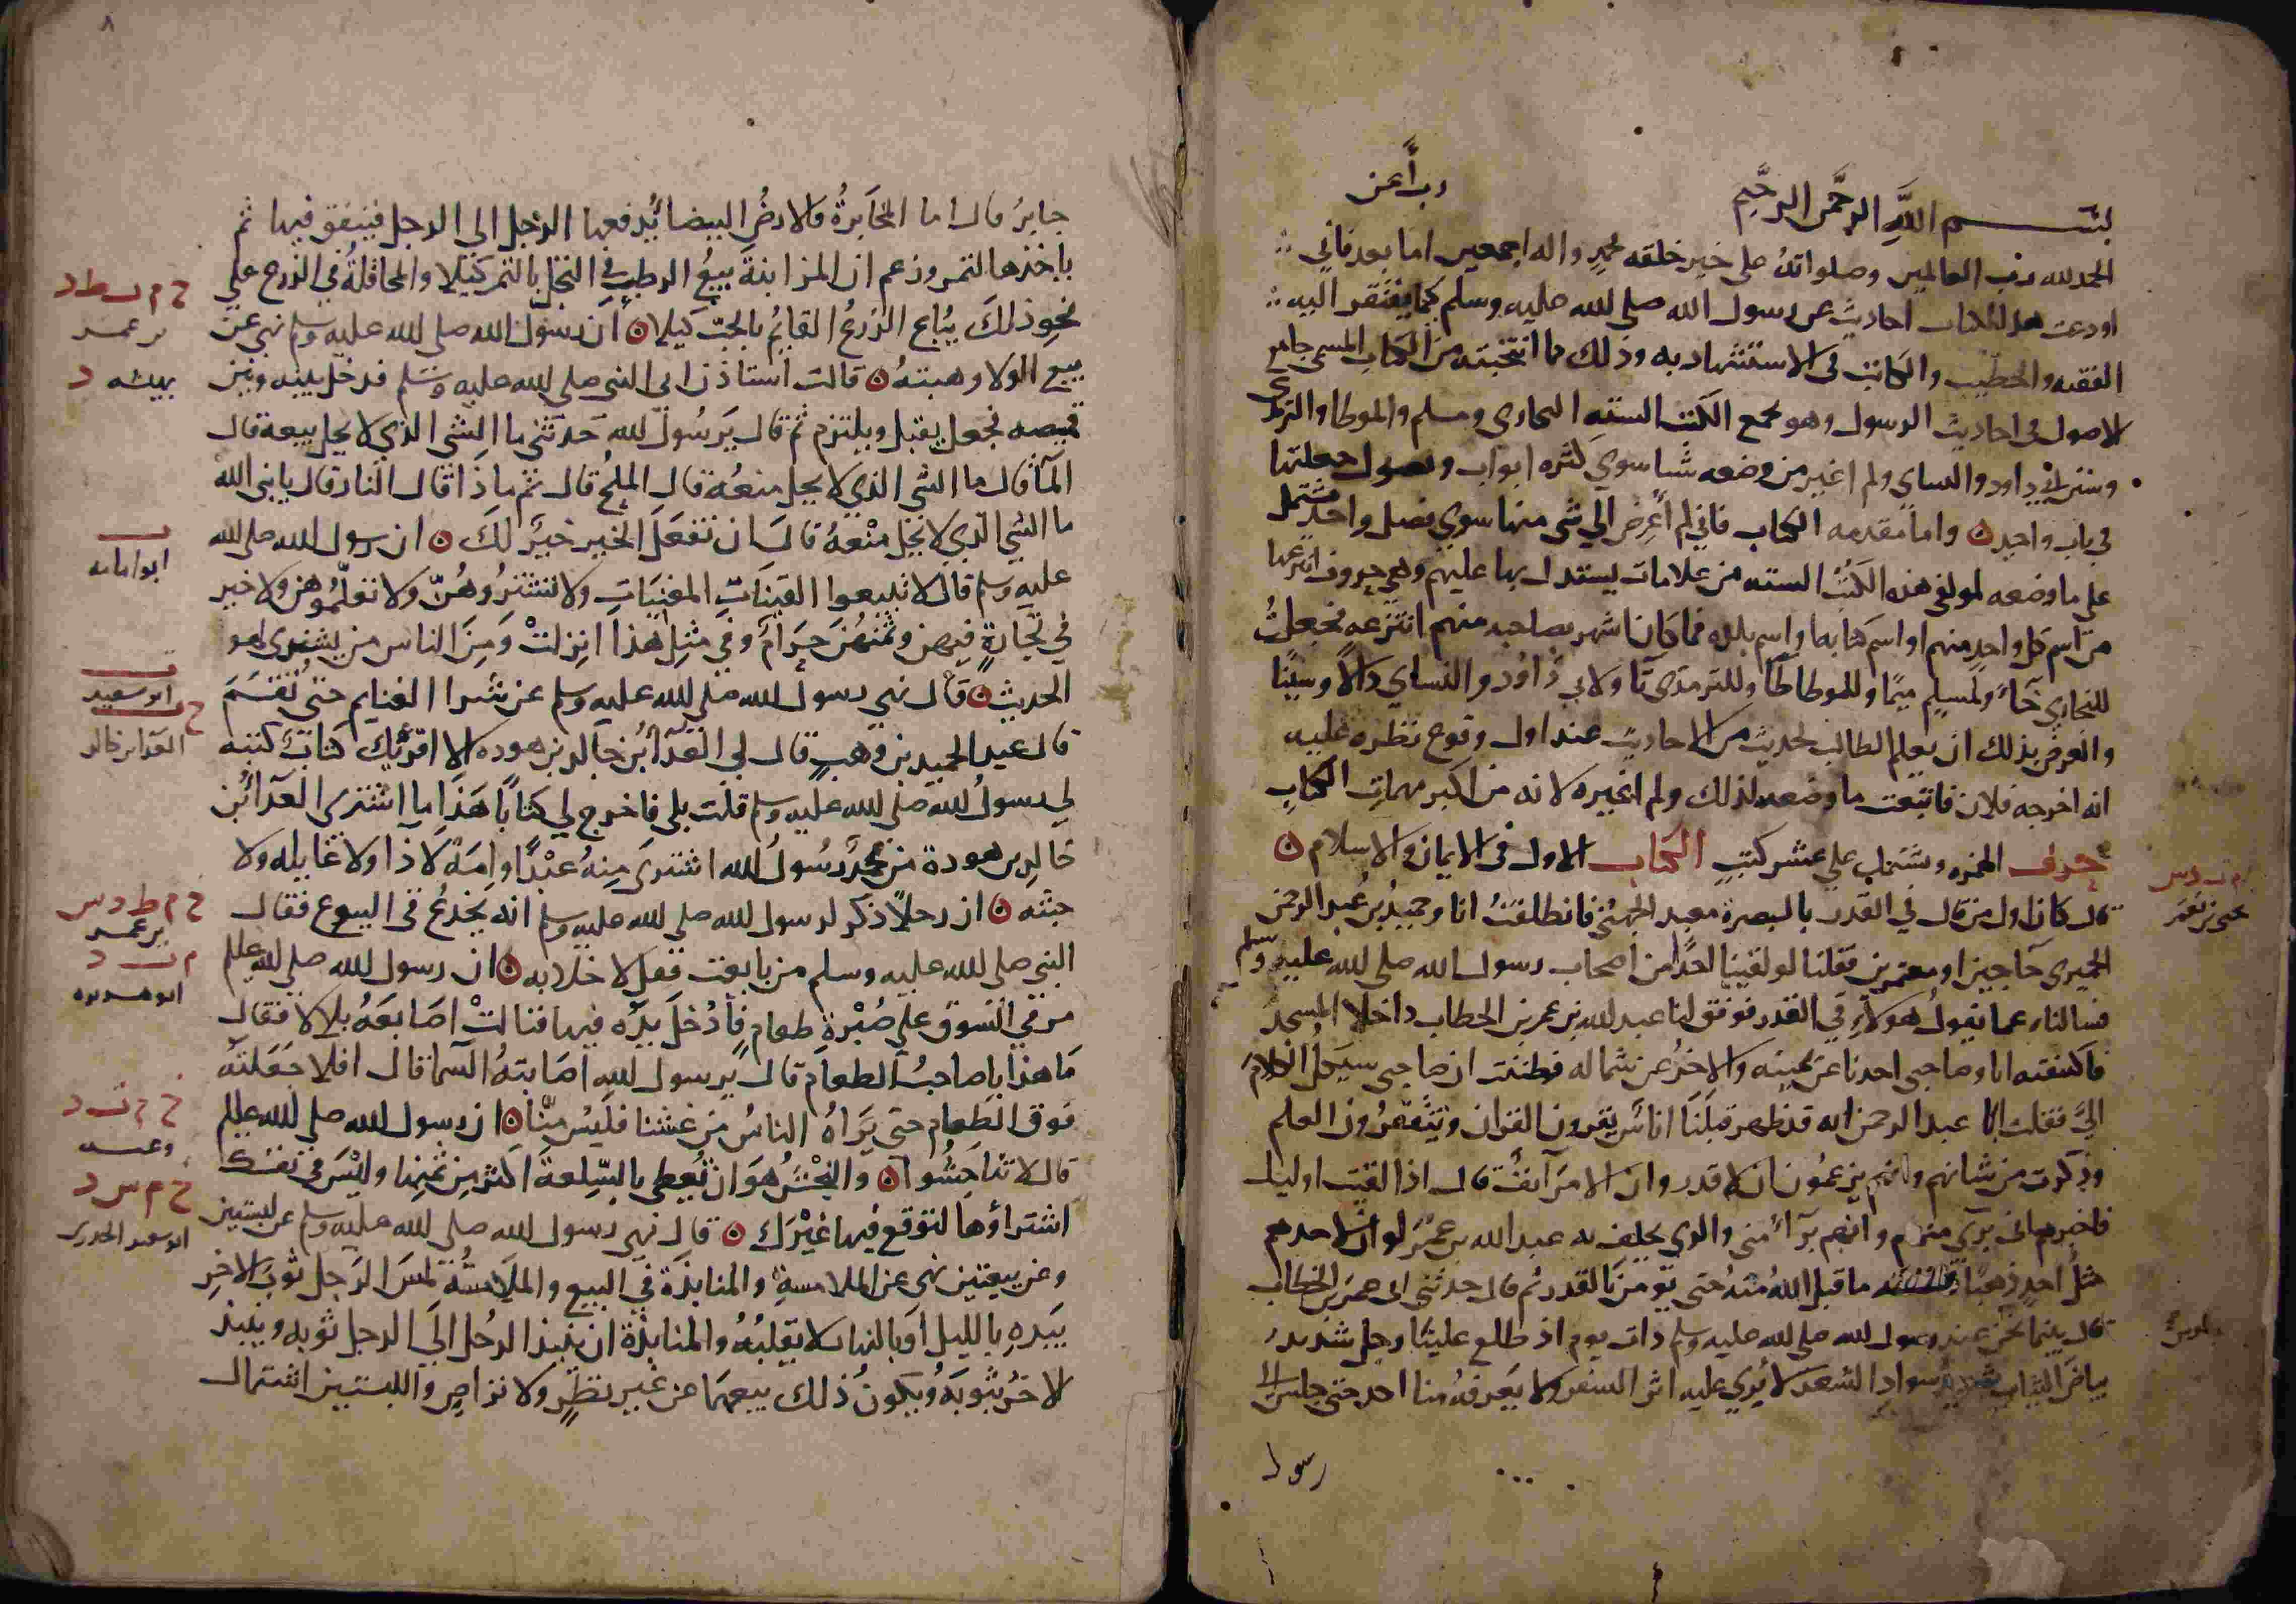 رب أعن
بسم الله الرحمن الرحيم
الحمد لله رب العالمين وصلواته على خير خلقه محمد واله اجمعين اما بعد فاني
اودعت هذا الكتاب احاديث عن رسول الله صلى الله عليه وسلم كما يفتقر اليه
الفقيه والخطيب والكاتب في الاستشهاد به وذلك مما انتخبته من الكتاب المسمى جامع
الاصول في احاديث الرسول وهو يجمع الكتب الستة البخاري ومسلم والموطا والترمذي
وسنن أبي داود والنساي ولم اغير من وضعه شيا سوى كثره ابواب وفصول جعلتها
في باب واحد ن واما مقدمه الكتاب فاني لم أعرض الي شي منها سوي فصل واحد يشتمل
على ما وضعه لمولفي هذه الكتب الستة من علامات يستدل بها عليهم وهي حروف انتزعها
من اسم كل واحد منهم او اسم كتابه او اسم بلده فما كان اشهر بصاحبه منهم انتزعه فجعلت
للبخاري خاء ولمسلم ميما وللموطا طا وللترمذي تا ولابي داود والنساي دالا وسينا
والغرض بذلك ان يعلم الطالب لحديث من الاحاديث عند اول وقوع نظره عليه
انه اخرجه فلان فاتبعت ما وضعه لذلك ولم اغيره لانه من اكبر مهمات الكتاب
حرف الهمزه ويشتمل علي عشر كتب الكتاب الاول في الايمان والاسلام ن
م ت د س
يحيى بن يعمر
قال كان اول من قال في القدر بالبصرة معبد الجهني فانطلقت انا وحميد بن عبد الرحمن
الحميري حاجين او معتمرين فقلنا لو لقينا احدا من اصحاب رسول الله صلى الله عليه وسلم
فسالناه عما يقول هولاء في القدر فوفق لنا عبد الله بن عمر بن الخطاب داخلا المسجد
فاكتنفته انا وصاحبي احدنا عن يمينه والاخر عن شماله فظننت ان صاحبي سيكل الكلام
الي فقلت ابا عبد الرحمن انه قد ظهر قبلنا اناس يقرون القران ويتقفرون العلم
وذكرت من شانهم وانهم يزعمون ان لا قدر وان الامر آنف قال اذا لقيت اوليك
فاخبرهم اني بري منهم وانهم برآء مني والذي يحلف به عبد الله بن عمر لو ان لاحدهم
مثل احد ذهبا فانفقه ما قبل الله منه حتى يومن بالقدر ثم قال حدثني ابي عمر بن الخطاب
قال بينما نحن عند رسول الله صلى الله عليه وسلم ذات يوم اذ طلع علينا رجل شديد
بياض الثياب شديد سواد الشعر لا يرى عليه اثر السفر ولا يعرفه منا احد حتى جلس الى
رسول
٨
جابر قال اما المخابرة فالارض البيضا يدفعها الرجل الى الرجل فينفق فيها ثم
ياخذها لتمر وزعم ان المزابنة بيع الرطب في النخل بالتمر كيلا والمحاقلة في الزرع علي
نحو ذلك يباع الزرع القايم بالحب كيلا ن أن رسول الله صلى الله عليه وسلم نهى عن
خ م ت ط د
بن عمر
بيع الولا وهبته ن قالت استاذن ابي النبي صلى الله عليه وسلم فدخل بينه وبين
بهيسه د
قميصه فجعل يقبل ويلتزم ثم قال يرسول الله حدثني ما الشي الذي لا يحل بيعه قال
المآ قال ما الشي الذي لا يحل منعه قال الملح قال ثم ماذا قال النار قال يا نبي الله
ما الشي الذي لا يحل منعه قال ان تفعل الخير خير لك ن ان رسول الله صلى الله
ت
ابو امامه
عليه وسلم قال لا تبيعوا القينات المغنيات ولا تشتروهن ولا تعلموهن ولا خير
في تجارة فيهن وثمنهن حرام وفي مثل هذا انزلت ومن الناس من يشتري لهو
الحديث ن قال نهى رسول الله صلى الله عليه وسلم عن شرا الغنايم حتى تقسم
ت
ابو سعيد
خ ت
العدا بن خالد
قال عبد المجيد بن وهب قال لي العدآء بن خالد بن هوده الا اقرئك كتابا كتبه
لي رسول الله صلى الله عليه وسلم قلت بلى فاخرج لي كتابا هذا ما اشترى العدآء بن
خالد بن هودة من محمد رسول الله اشترى منه عبدا او امة لا دا ولا غايله ولا
خبثه ن ان رجلا ذكر لرسول الله صلى الله عليه وسلم انه يخدع في البيوع فقال
خ م ط د س
بن عمر
النبي صلى الله عليه وسلم من بايعت فقل لا خلابه ن ان رسول الله صلى الله عليه وسلم
م ت د
ابو هريره
مر في السوق على صبرة طعام فأدخل يده فيها فنالت اصابعه بللا فقال
ما هذا يا صاحب الطعام قال يرسول الله اصابته السما قال افلا جعلته
فوق الطعام حتى يراه الناس من غشنا فليس منا ن ان رسول الله صلى الله عليه وسلم
خ م ت د
وعنه
قال لا تناجشوا ن والنجش هو ان تعطي بالسلعة اكثر من ثمنها وليس في نفسك
اشتراؤها لتوقع فيها غيرك ن قال نهى رسول الله صلى الله عليه وسلم عن لبستين
خ م س د
ابو سعيد الخدري
وعن بيعتين نهى عن الملامسة والمنابذة في البيع والملامسة لمس الرجل ثوب الاخر
بيده بالليل او بالنهار لا يقلبه والمنابذة ان ينبذ الرجل الى الرجل ثوبه وينبذ
الاخر ثوبه ويكون ذلك بيعهما عن غير نظر ولا تراض واللبستين اشتمال